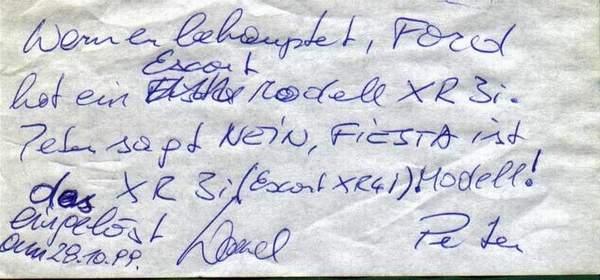 Werner behauptet, Ford
Escort
hat ein Modell XR 3i.
Peter sagt NEIN, FIESTA ist
das XR 3i (Escort XR4i) Modell!
eingelöst
am 28.10.99.
Peter